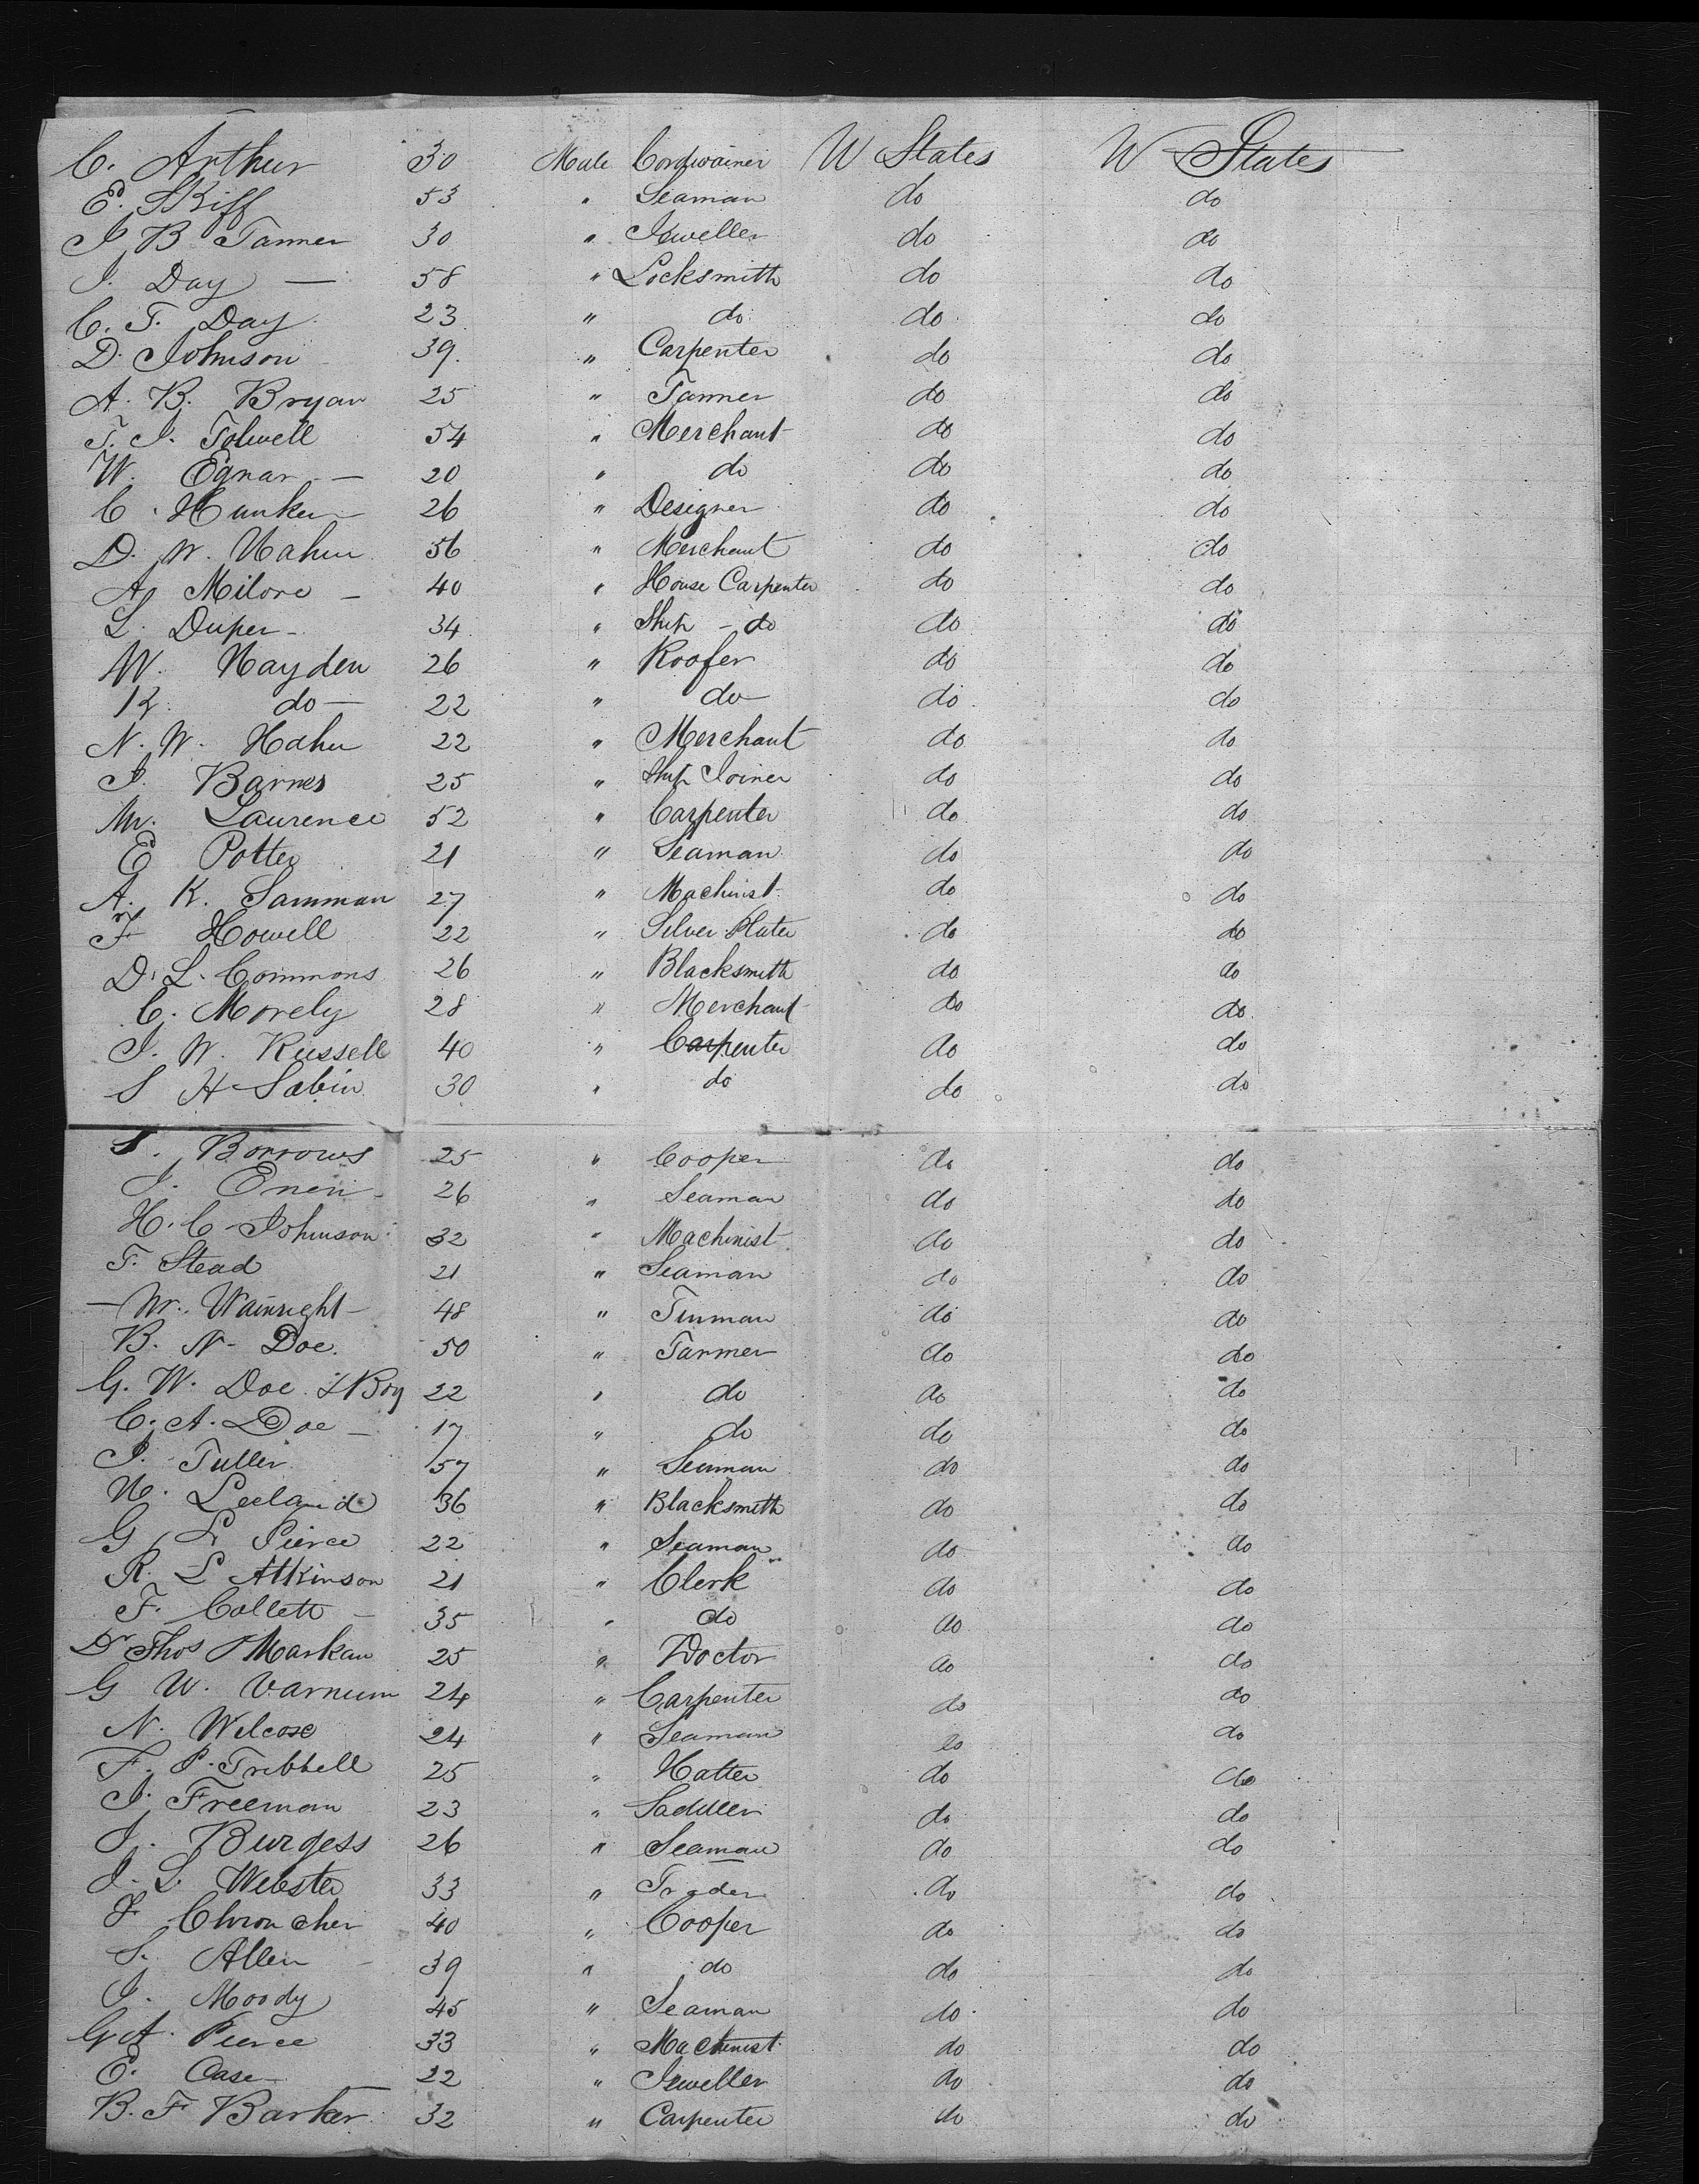 C. Arthur 30 Male Cordwainer U States U States
E. Skiff 53 " Seaman do do
J B Tanner 30 " Jeweller do do
J. Day — 58 " Locksmith do do
C. T. Day 23 " do do do
D. Johnson 39. " Carpenter do do
A. B. Bryan 25 " Tanner do do
T. J. Tolwell 54 " Merchant do do
W. Egnar — 20 " do do do
C. Hunken 26 " Designer do do
D. W. Hahn 56 " Merchant do do
A Milore — 40 " House Carpenter do do
L. Duper — 34 " Ship - do do do
W. Hayden 26 " Roofer do do
R. do — 22 " do do do
N. W. Hahn 22 " Merchant do do
J. Barnes 25 " Ship Joiner do do
W. Laurence 52 " Carpenter do do
E Potter 21 " Seaman do do
A. K. Samman 27 " Machinist do do
F Howell 22 " Silver Plater do do
D. L. Commons 26 " Blacksmith do do
C. Morely 28 " Merchant do do
J. W. Russell 40 " Carpenter do do
S H Sabin 30 " do do do
S. Borrows 25 " Cooper do do
J. 26 " Seaman do do
H. C Johnson 32 " Machinist do do
T. Stead 21 " Seaman do do
— W. Wainright — 48 " Tinman do do
B. N. Doe. 50 " Farmer do do
G. W. Doe & Boy 22 " do do do
C. A. Doe — 17 " do do do
J. Tuller 57 " Seaman do do
H. Leeland 36 " Blacksmith do do
G L Pierce 22 " Seaman do do
R. L Atkinson 21 " Clerk do do
F. Collett — 35 " do do do
Dr Thos Markan 25 " Doctor do do
G W. Varnum 24 " Carpenter do do
N. Wilcox 24 " Seaman do do
F. P. Tribbell 25 " Hatter do do
J. Freeman 23 " Saddler do do
J. Burgess 26 " Seaman do do
J. L. Webster 33 " Trader do do
F Chroncher 40 " Cooper do do
S. Allen — 39 " do do do
J. Moody 45 " Seaman do do
G A. Pierce 33 " Machinist do do
E. Case 22 " Jeweller do do
B. F Barker 32 " Carpenter do do